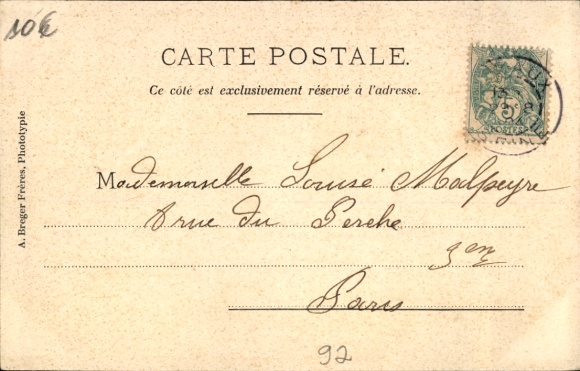 10€
CARTE POSTALE.
Ce côté est exclusivement réservé à l'adresse.
A. Breger Frères, Phototypie
Mademoiselle Louise Malpeyre
rue du Perche
3em
Paris
92